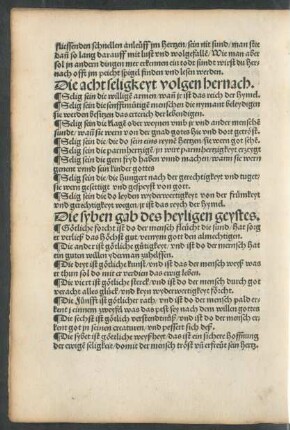 fliessenden schnellen anleüff jm hertzen, sein nit sund, man stee
dan so lang darauff mit lust und wolgefalle. Wie man aber
sol jn andern dingen mer erkennen ein todt sund wirst du her
nach offt jm peicht spigel finden und lesen werden.
Die acht seligkeyt volgen hernach.
¶ Selig sein die willige armen, wan jr ist das reich der hymel.
¶ Selig sein die senfftmütige menschen die nymant beleydigen
sie werden besitzen das ertrich der lebendigen.
¶ Selig sein die klagē oder weynen umb jr und ander menschē
sunde, wan sie wern von der gnad gottes hie und dort getröst.
¶ Selig sein die die do sein eins reyne hertzen, sie wern got sehē.
¶ Selig sein die parmhertzige, jn wirt parmhertzigkeit gescheē
¶ Selig sein die gern frid haben unnd machen, wann sie wern
genent unnd sein kinder gottes
¶ Selig sein die, die hungert nach der gerechtigkeyt und tuget,
sie wern gesettigt und gespeyst von gott.
¶ Selig sein die do leyden wyderwertigkeyt von der frümkeyt
und gerechtigkeyt wegen, jr ist das reych der hymel.
Die syben gab des heyligen geystes.
¶ Götliche forcht ist do der mensch fleücht die sund. Hat sorg
er verließ das höchst gut, vernym gott den almechtigen.
¶ Die ander ist götliche gütigkeyt, und ist do der mensch hat
ein guten willen yderman zuhelffen.
¶ Die dryt ist götliche kunst, und ist das der mensch weyß was
er thun sol do mit er verdien das ewig leben.
¶ Die viert ist götliche sterck, und ist do der mensch durch got
veracht alles glück, und keyn wyderwertigkeyt förcht.
¶ Die Fünfft ist götlicher rath, und ist do der mensch pald er
kent jeinem zweyfel was das pest sey nach dem willen gottes
¶ Die sechst ist götlich verstendtnuß, und ist do der mensch er
kent got jn seinen creaturn, und pessert sich deß.
¶ Die sybet ist götliche weyßheyt, das ist ein sichere Hoffnung
der ewigē seligkeit, domit der mensch tröst un erfreüt sein hertz.